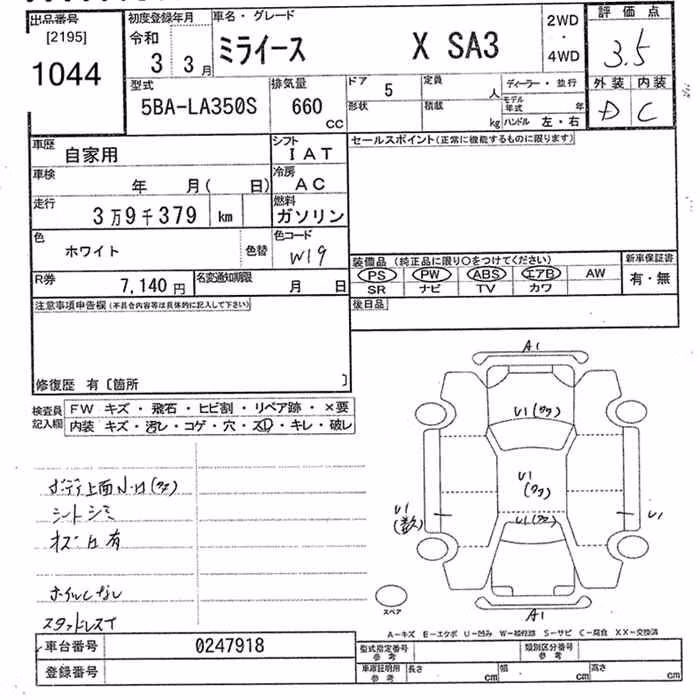 出品番号
[2195]
1044
初度登録年月
令和
3 3月
車名・グレード
ミライース X SA3
2WD
・
4WD
評価点
3.5
外装 内装
D C
型式
5BA-LA350S
排気量
660
CC
ドア
5
定員
人
形状
積載
kg
ディーラー・並行
モデル年式 年
ハンドル 左・右
車歴
自家用
シフト
IAT
車検
年 月( 日)
冷房
AC
走行
3万9千379 km
燃料
ガソリン
色
ホワイト
色替
色コード
W19
R券
7,140円
名変通知期限
月 日
セールスポイント(正常に機能するものに限ります)
装備品 (純正品に限り○をつけてください)
新車保証書
PS PW ABS エアB AW
SR ナビ TV カワ
有・無
後日品
注意事項申告欄(不具合内容等は具体的に記入して下さい)
修復歴 有〔箇所 〕
検査員記入欄
FW キズ・飛石・ヒビ割・リペア跡・×要
内装 キズ・汚レ・コゲ・穴・スレ・キレ・破レ
シートシミ
ホイルしなし
スタッドレスT
A1
U1
U1
U1
U1
U1
A1
スペア
A-キズ E-エクボ U-凹み W-補修跡 S-サビ C-腐食 XX-交換済
車台番号
0247918
登録番号
型式指定番号
参考
類別区分番号
参考
車庫証明用
参考
長さ cm
幅 cm
高さ cm